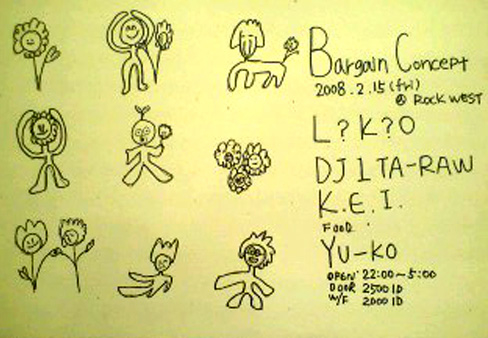 Bargain Concept
2008.2.15 (fri)
@ Rock West
L?K?O
DJ 1TA-RAW
K.E.I.
FOOD
YU-KO
OPEN 22:00~5:00
DOOR 2500 1D
W/F 2000 1D